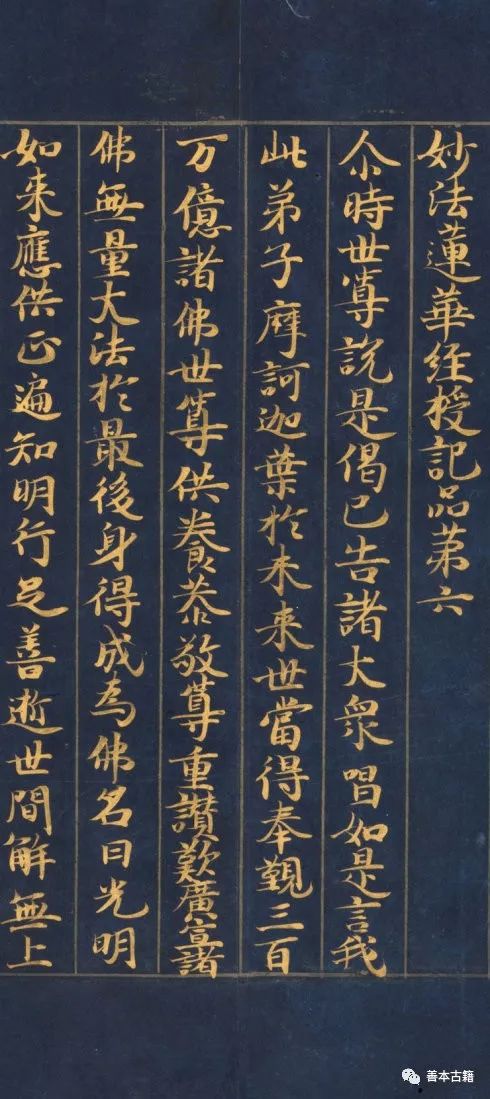 妙法蓮華經授記品第六
尒時世尊說是偈已告諸大眾唱如是言我
此弟子摩訶迦葉於未來世當得奉覲三百
万億諸佛世尊供養恭敬尊重讚歎廣宣諸
佛無量大法於最後身得成為佛名曰光明
如來應供正遍知明行足善逝世間解無上
善本古籍